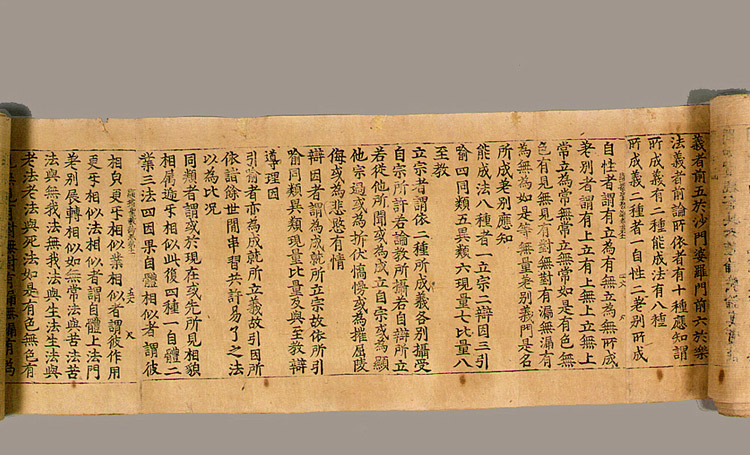 義者前五於沙門婆羅門前六於樂
法義者前論所依者有十種應知謂
所成義有二種能成法有八種
所成義二種者一自性二差別所成
自性者謂有立為有無立為無所成
差別者謂有上立有上無上立無上
常立為常無常立無常如是有色無
色有見無見有對無對有漏無漏有
為無為如是等無量差別義門是名
所成差別應知
能成法八種者一立宗二辯因三引
喻四同類五異類六現量七比量八
至教
立宗者謂依二種所成義各別攝受
自宗所許若論教所攝若自辯所立
若從他所聞或為成立自宗或為顯
他宗過或為折伏憍慢或為摧屈陵
侮或為悲愍有情
辯因者謂為成就所立宗故依所引
喻同類異類現量比量及與至教辯
導理因
引喻者亦為成就所立義故引因所
依諸餘世間串習共許易了之法
以為比况
同類者謂或於現在或先所見相貌
相屬遞牙相似此復四種一自體二
業三法四因果自體相似者謂彼
相身更牙相似業相似者謂彼作用
更牙相似法相似者謂自體上法門
差別展轉相似如無常法與苦法苦
法與無我法無我法與生法生法與
老法老法與死法如是有色無色有
見無見有對無對有漏無漏有為